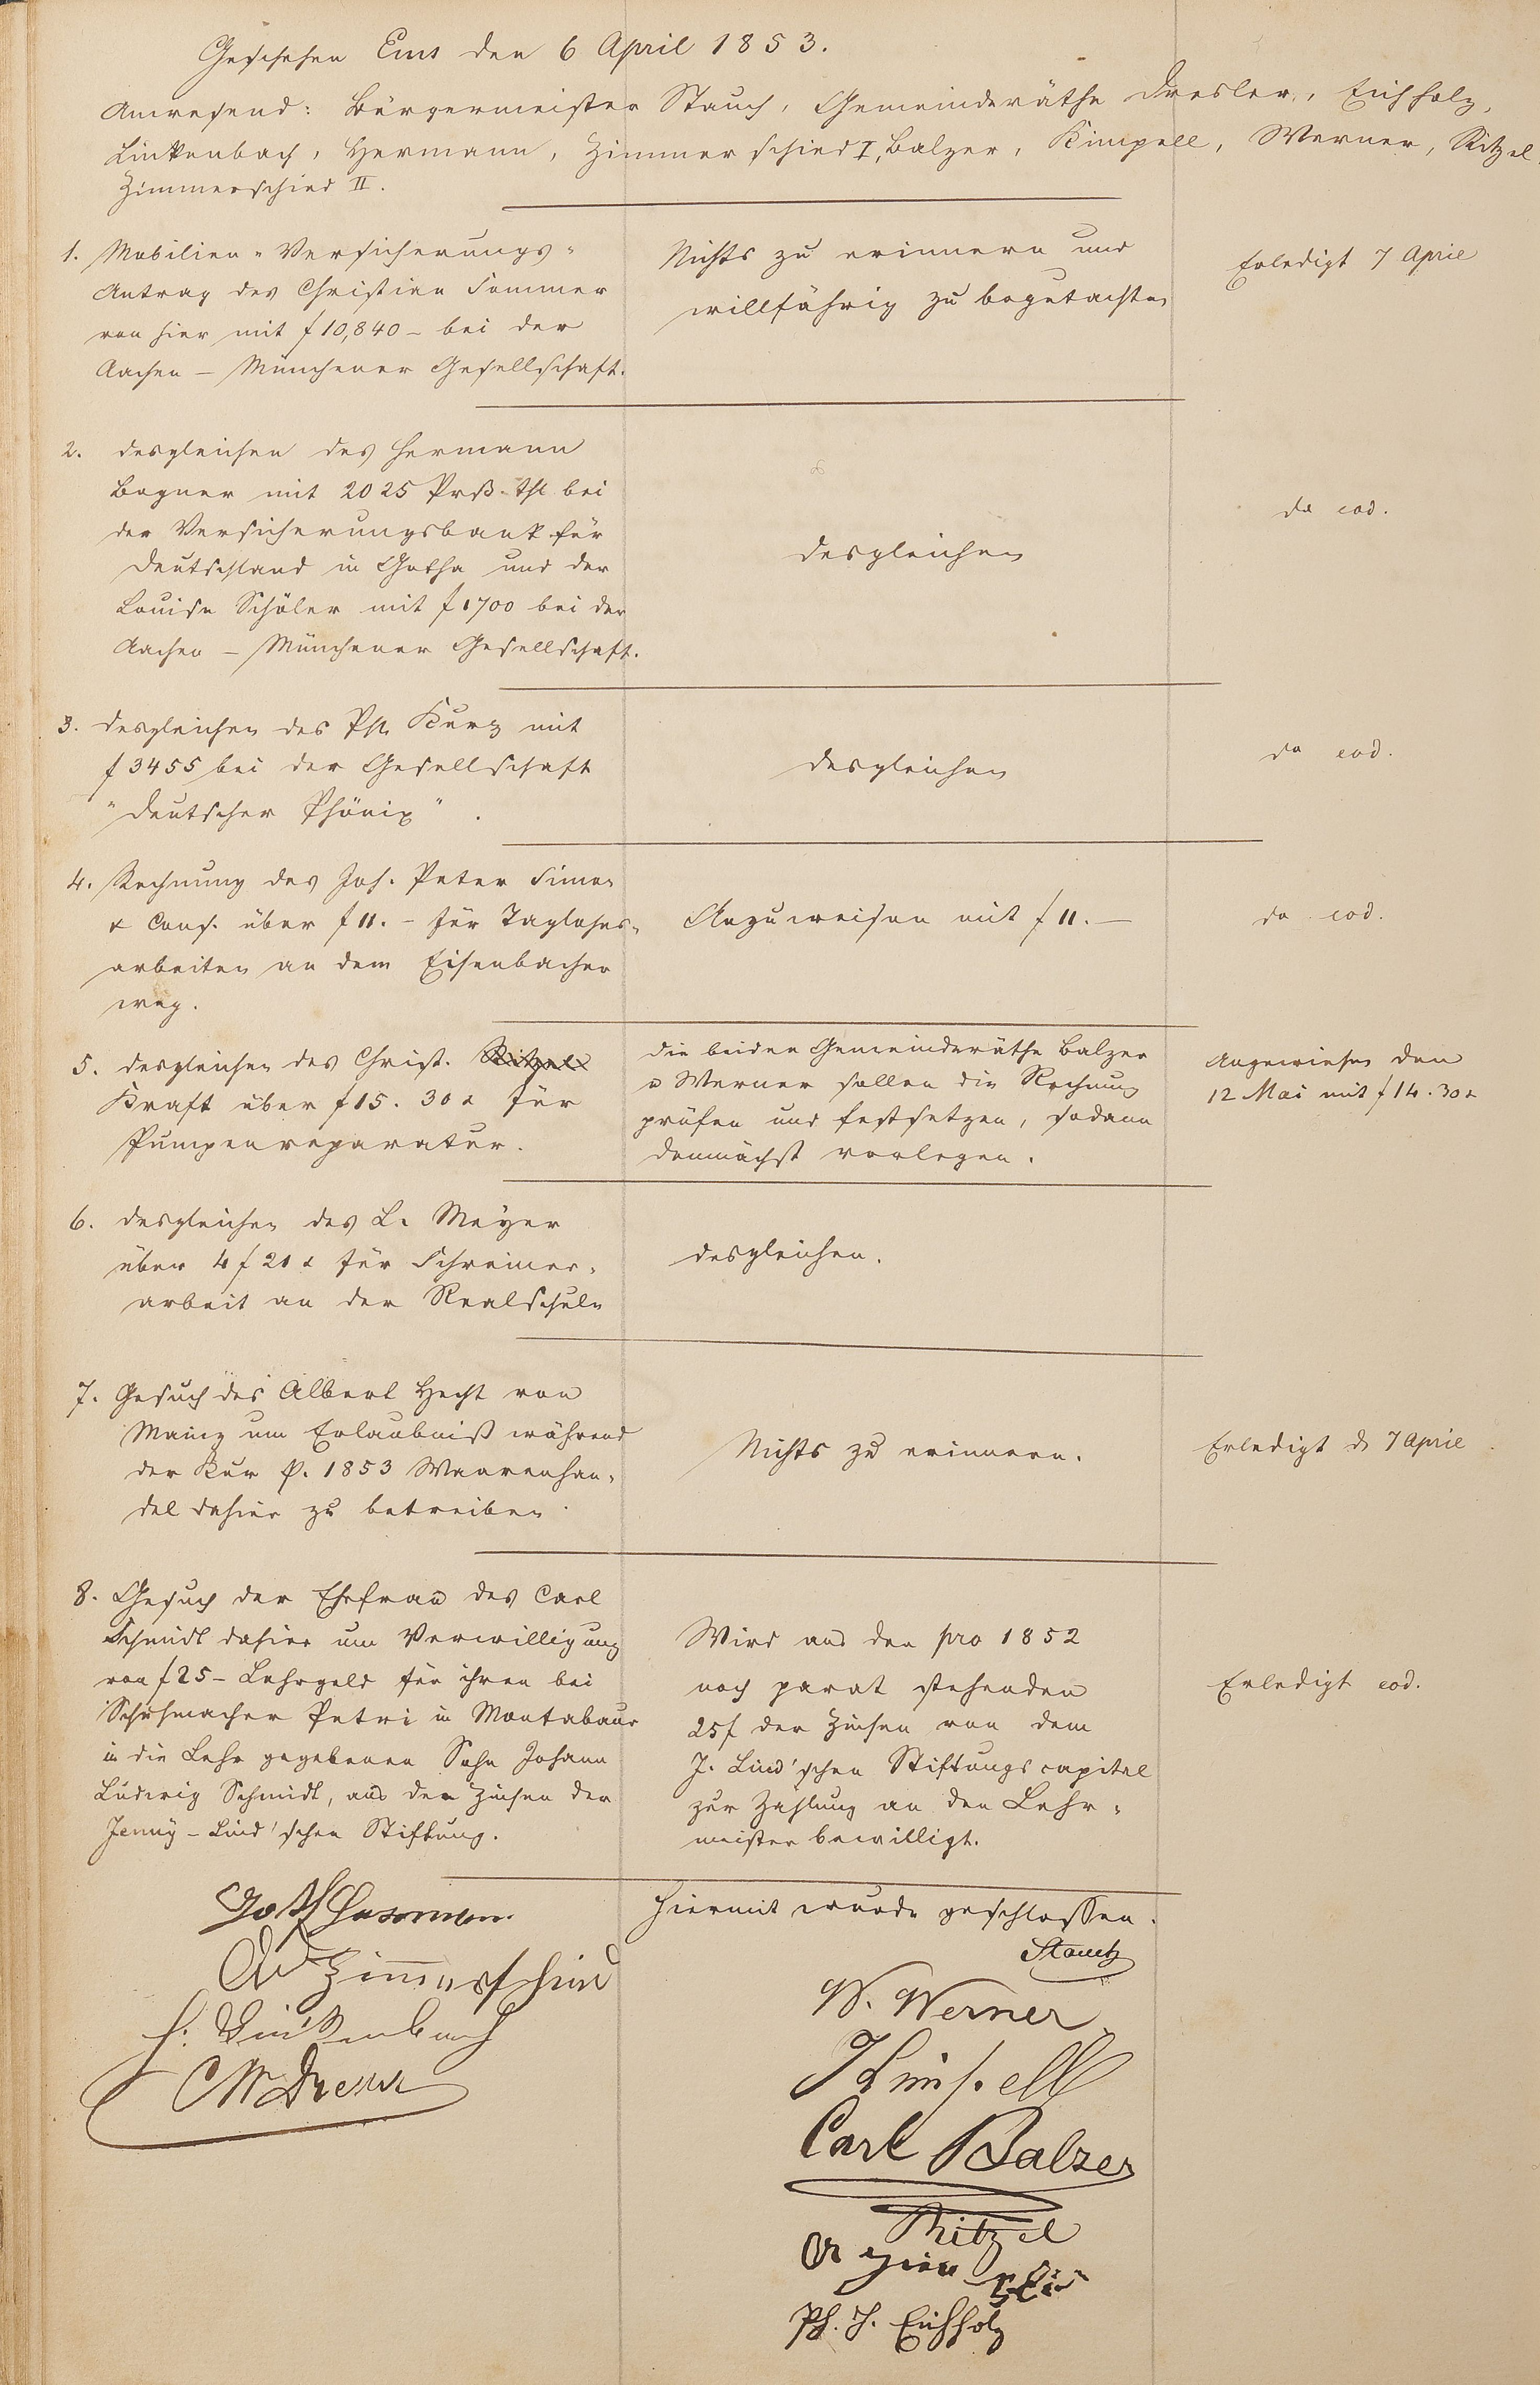 Geschehen Ems den 6 April 1853.
Anwesend: Bürgermeister Stauch, Gemeinderäthe Dresler, Eichholz,
Linkenbach, Hermann, Zimmerschied I, Balzer, Kimpell, Werner, Ritzel,
Zimmerschied II.
1. Mobilien-Versicherungs-
Antrag des Christian Sommer
von hier mit f 10,840 – bei der
Aachen – Münchener Gesellschaft.
Nichts zu erinnern und
willfährig zu begutachten
Erledigt 7 April
2. desgleichen des Hermann
Bogner mit 2025 Prß. Thl bei
der Versicherungsbank für
Deutschland in Gotha und der
Louise Schöler mit f 1700 bei der
Aachen – Münchener Gesellschaft.
desgleichen
do eod.
3. desgleichen des Ph. Kurz mit
f 3455 bei der Gesellschaft
"Deutscher Phönix".
desgleichen
do eod.
4. Rechnung des Joh. Peter Simon
& Cons. über f 11. – für Taglohns-
arbeiten an dem Eisenbacher
weg.
Anzuweisen mit f 11. –
do eod.
5. desgleichen des Christ. Ritzel
Kraft über f 15. 30 x für
Pumpenreparatur.
Die beiden Gemeinderäthe Balzer
u Werner sollen die Rechnung
prüfen und festsetzen, sodann
demnächst vorlegen.
Angewiesen den
12 Mai mit f 14. 30 x
6. desgleichen des L. Meyer
über 4 f 21 x für Schreiner-
arbeit an der Realschule
desgleichen.
7. Gesuch des Albert Hecht von
Mainz um Erlaubniß während
der Kur p. 1853 Waarenhan-
del dahier zu betreiben.
Nichts zu erinnern.
Erledigt d 7 April
8. Gesuch der Ehefrau des Carl
Schmidt dahier um Verwilligung
von f 25 – Lehrgeld für ihren bei
Schuhmacher Petri in Montabaur
in die Lehr gegebenen Sohn Johann
Ludwig Schmidt, aus den Zinsen der
Jenny-Lind'schen Stiftung.
Wird aus den pro 1852
noch parat stehenden
25 f der Zinsen von dem
J. Lind'schen Stiftungscapital
zur Zahlung an den Lehr-
meister bewilligt.
Erledigt eod.
Hiermit wurde geschlossen.
Stauch
Zimmerschied
H. Linkenbach
CW Dresler
W. Werner
J Kimpell
Carl Balzer
Ritzel
Ph. J. Eichholz